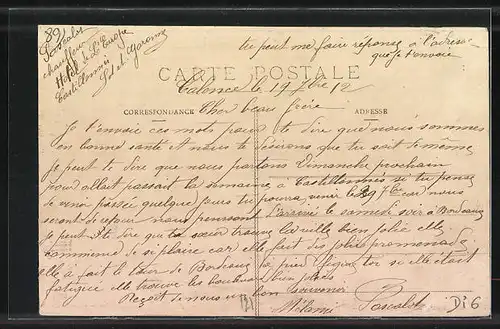 89
Pascalet
chauffeur
Hôtel de l'Europe
Castillonnès
Lot et Garonne
tu peut me faire réponse a l'adresse
que je t'envoie
CARTE POSTALE
Talence le 19 7bre 12
CORRESPONDANCE
ADRESSE
Cher beau frère
Je t'envoie ces mots pour te dire que nous sommes
en bonne santé et nous te désirons que tu soit de même
Je peut te dire que nous partons Dimanche prochain
pour allait passait la semaine a Castillonnès si tu pense
de venir passée quelque jours tu pourra venir le 29 7bre car nous
seront de retour nous pensont le samedi soir a Bordeaux
je peut te dire que ta sœur trouve la ville bien jolie elle
commence de si plaire car elle fait des jolies promenade
elle a fait le tour de Bordeaux a pied figure toi si elle était
fatiguée elle trouve les boulevard bien jolies
Reçoit de nous un bon souvenir
Mélanie Pascalet
D16